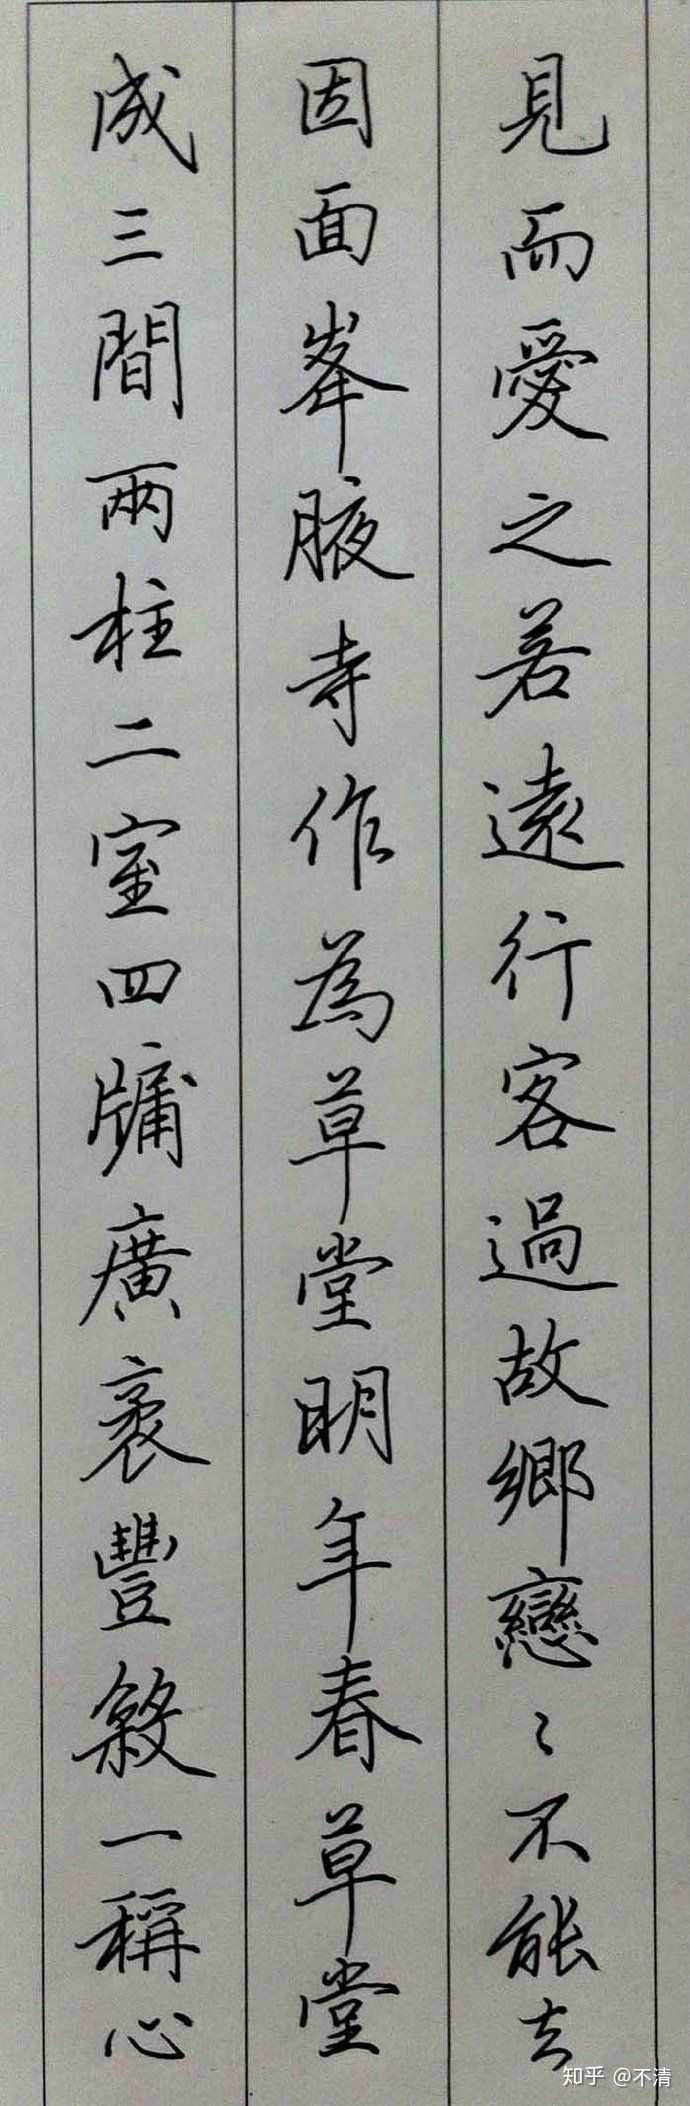 見而愛之若遠行客過故鄉戀〻不能去
因面峯腋寺作為草堂明年春草堂
成三間兩柱二室四牖廣袤豐殺一稱心
知乎 @不清